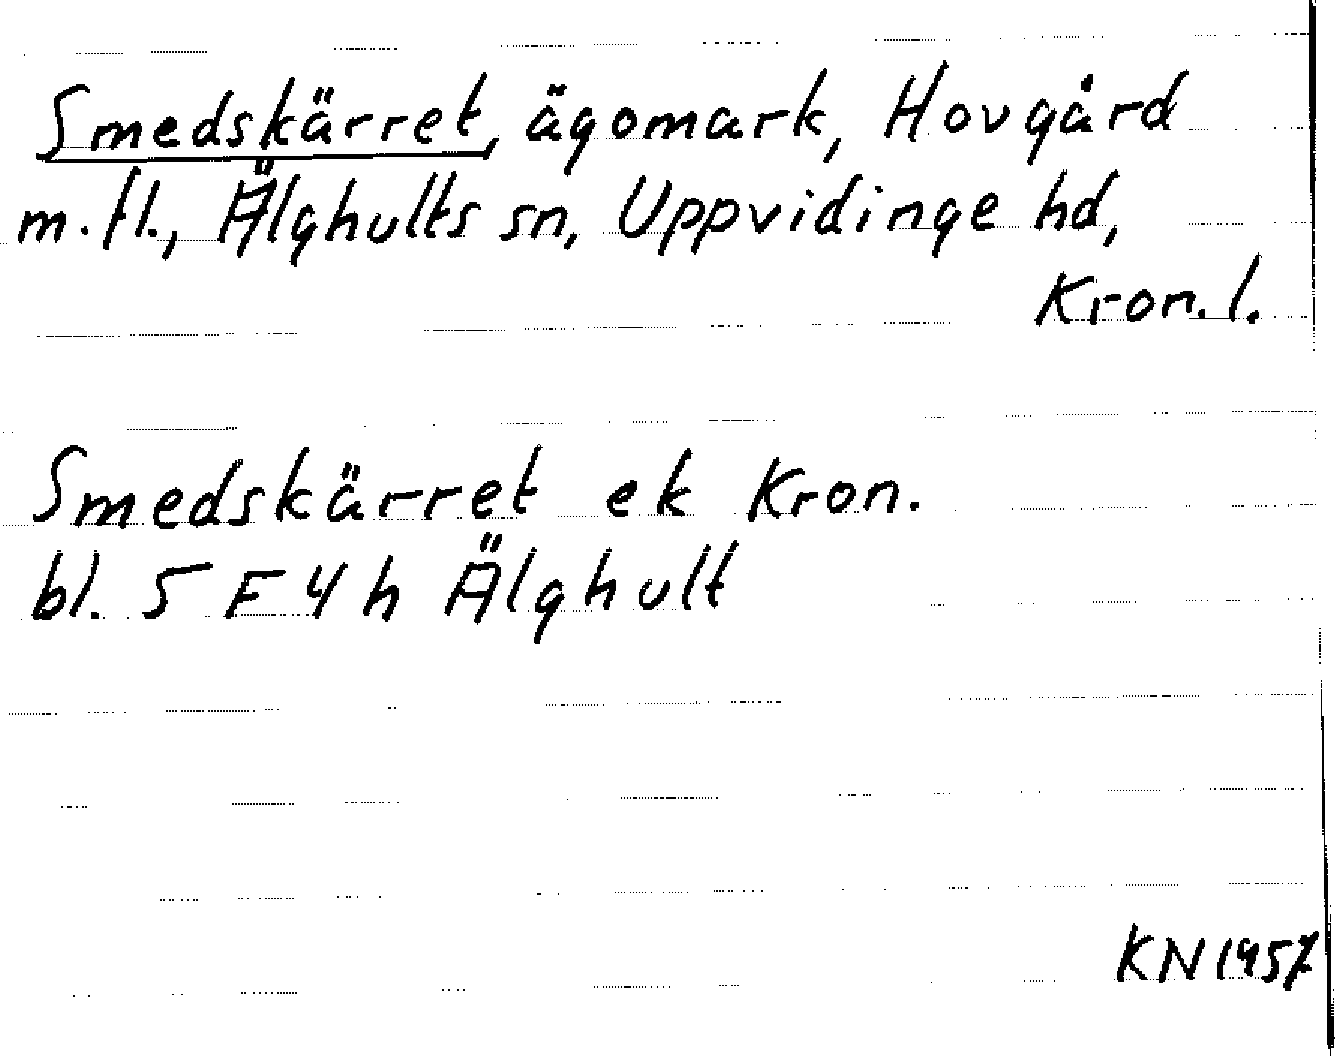 Smedskärret, ägomark, Hovgård
m.fl., Älghults sn, Uppvidinge hd,
Kron. l.
Smedskärret ek Kron.
bl. 5 F 4 h Älghult
KN 1957